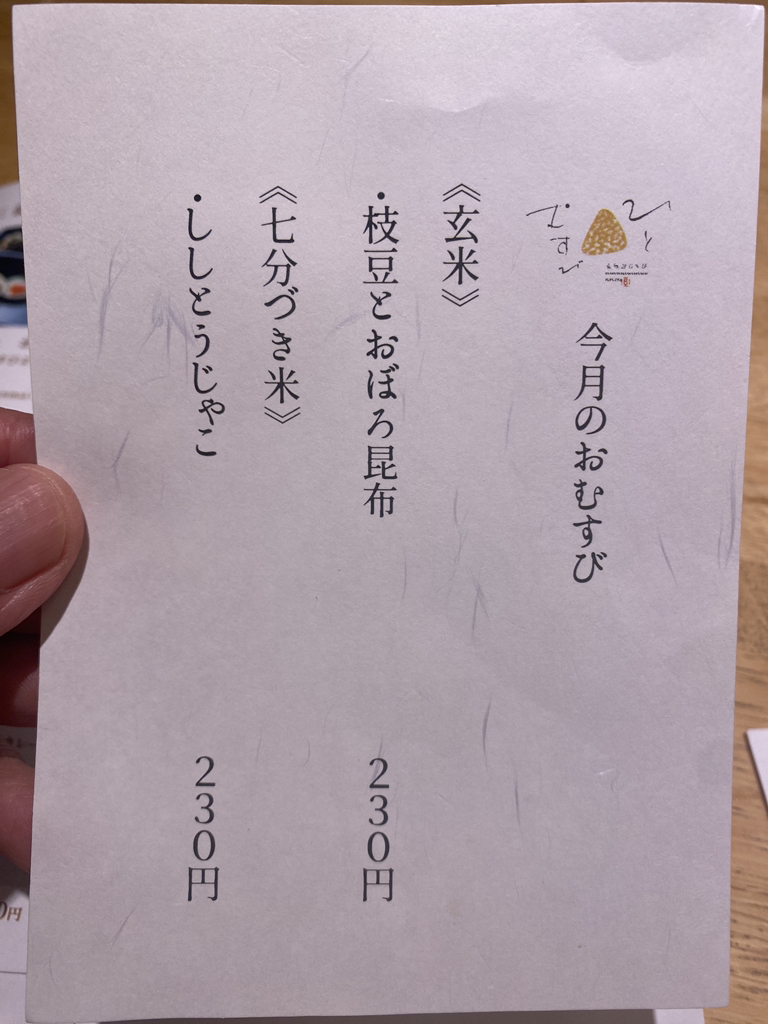 ひと
むすび
今月のおむすび
《玄米》
・枝豆とおぼろ昆布
230円
《七分づき米》
・ししとうじゃこ
230円
0円